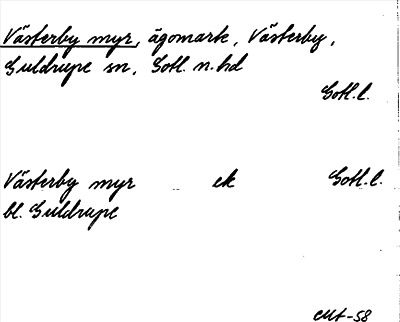 Västerby myr, ägomark, Västerby,
Guldrupe sn, Gotl. n. hd
Gotl. l.
Västerby myr ek Gotl. l.
bl. Guldrupe
CMt-58